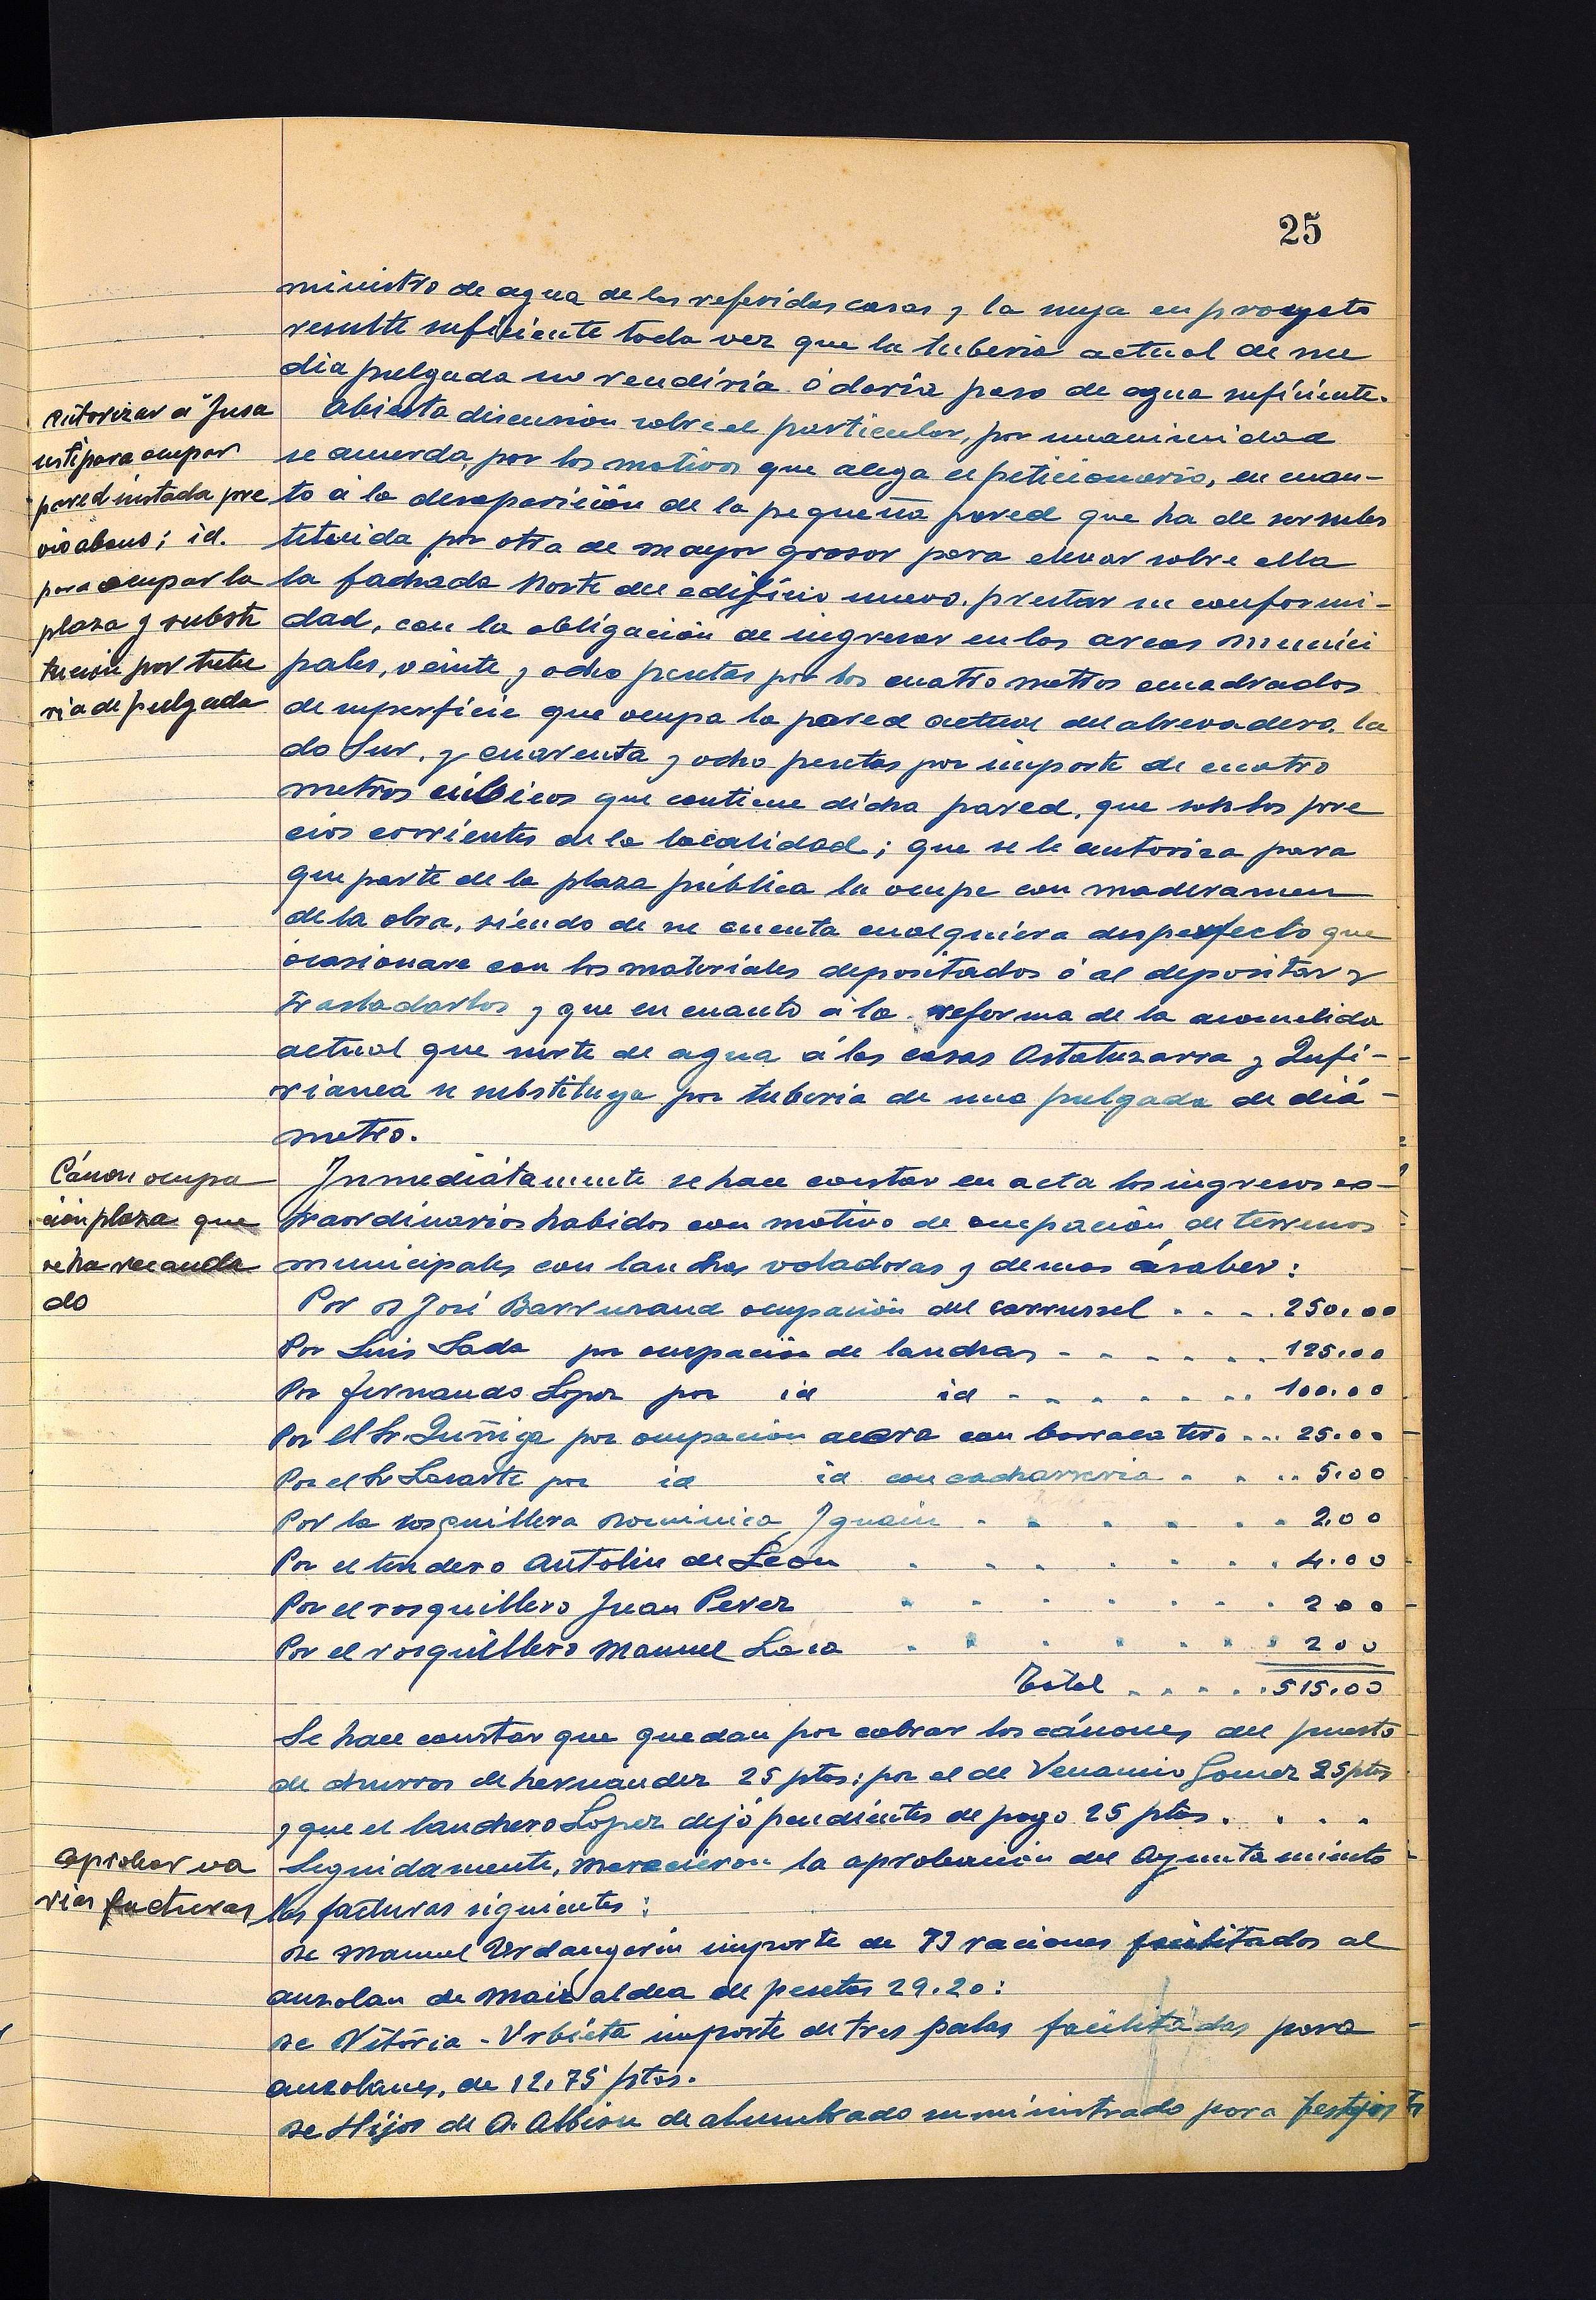 25
ministro de agua de las referidas casas y la suya en proyecto
resulte suficiente toda vez que la tuberia actual de me
dia pulgada no rendiria ó daria paso de agua suficiente.
autorizar á Jusa
usti para ocupar
pared instada pre
vio abono; id.
para ocupar la
plaza y substi
tución por tube
ria de pulgada
Abierta discusion sobre el particular, por unanimidad
se acuerda, por los motivos que alega el peticionario, en cuan-
to á la desaparición de la pequeña pared que ha de ser subs
tituida por otra de mayor grosor para elevar sobre ella
la fachada Norte del edificio nuevo, prestar su conformi-
dad, con la obligación de ingresar en las arcas munici
pales, veinte y ocho pesetas por los cuatro metros cuadrados
de superficie que ocupa la pared actual del abrevadero, la
do Sur, y cuarenta y ocho pesetas por importe de cuatro
metros cúbicos que contiene dicha pared, que son los pre
cios corrientes de la localidad; que se le autoriza para
que parte de la plaza pública la ocupe con maderamen
de la obra, siendo de su cuenta cualquiera desperfecto que
ocasionare con los materiales depositados ó al depositar y
trasladarlos y que en cuanto á la reforma de la acometida
actual que surte de agua á las casas Ostatuzarra y Infi-
rianea se substituya por tuberia de una pulgada de diá-
metro.
Cánon ocupa
ción plaza que
se ha recauda
do
Inmediátamente se hace constar en acta los ingresos ex-
traordinarios habidos con motivo de ocupación de terrenos
municipales con lanchas voladoras y demas á saber:
Por D José Barrusand ocupación del carrussel . . . . 250.00
Por Luis Lada por ocupación de lanchas - - - - . . 125.00
Por fernando Lopez por id id - . . . . . . 100.00
Por el Sr. Zuñiga por ocupación acera con barraca tiro ... 25.00
Por el Sr Lasarte por id id con cacharreria . . .. 5.00
Por la rosquillera Dominica Iguain . . . . . . . 2.00
Por el tendero Antolin de Leon . . . . . . . 4.00
Por el rosquillero Juan Perez . . . . . . . 2 00
Por el rosquillero Manuel Lasa . . . . . . . 2 00
Total . . . . . 515.00
Se hace constar que quedan por cobrar los cánones del puesto
de churros de hernández 25 ptas: por el de Venancio Gomez 25 ptas
y que el lanchero Lopez dejó pendientes de pago 25 ptas. . . . .
aprobar va
rias facturas
Seguidamente, merecieron la aprobación del Ayuntamiento
las facturas siguientes:
De Manuel Urdangarin importe de 73 raciones facilitados al
auzolan de aldea de pesetas 29.20:
De Vitória-Urbieta importe de tres palas facilitadas para
auzolanes, de 12,75 ptas.
De Hijos de A. Albisu de alumbrado suministrado para festejos